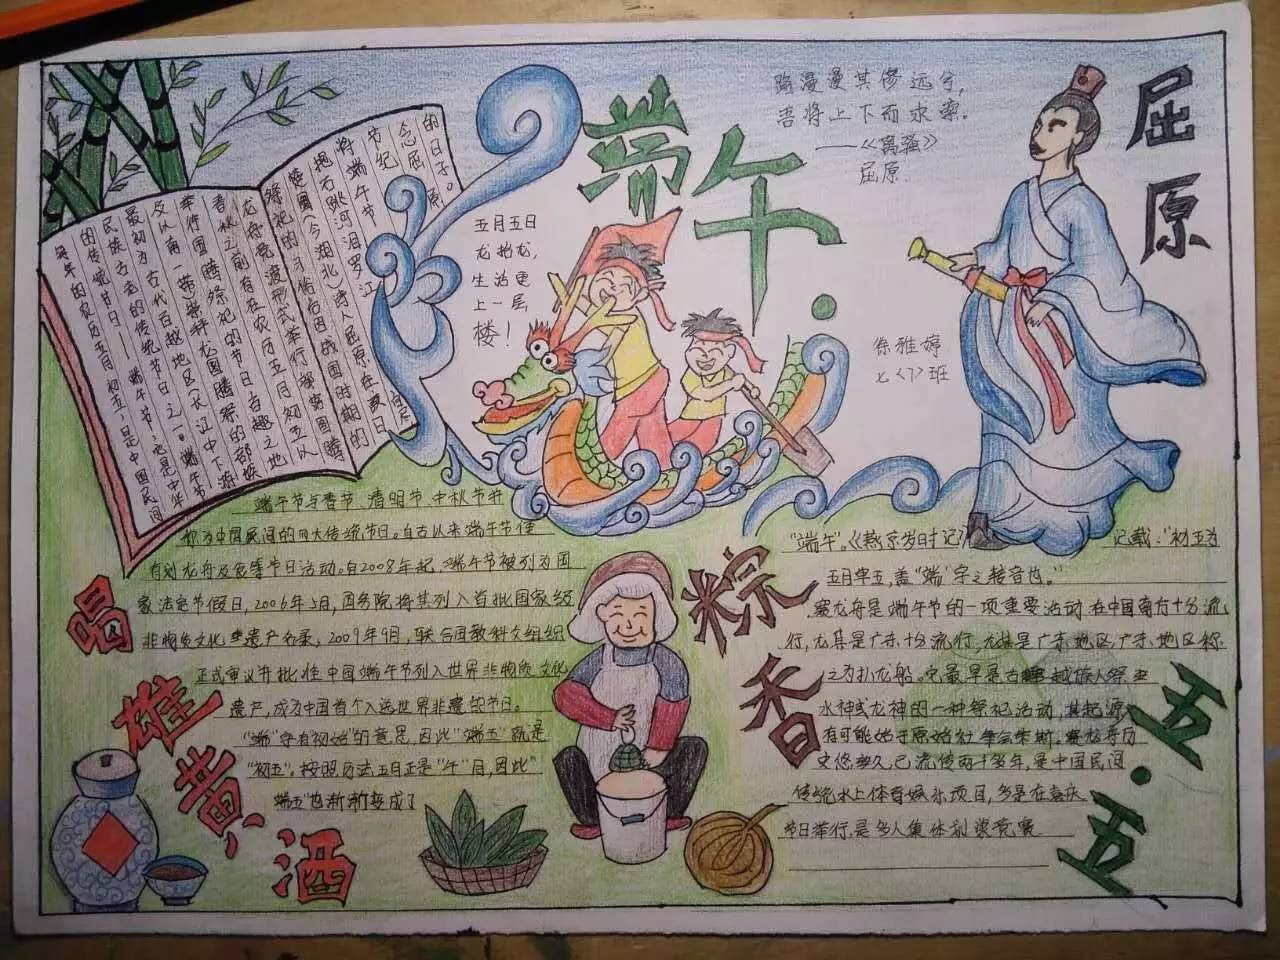 端午
屈原
路漫漫其修远兮，
吾将上下而求索。
——《离骚》
屈原
五月五日
龙抬龙，
生活更
上一层
楼！
徐雅婷
七〈7〉班
每年的农历五月初五，是中国民间
的传统节日——端午节，它是中华
民族古老的传统节日之一。端午节
最初为古代百越地区（长江中下游
及以南一带）崇拜龙图腾的部族
举行图腾祭祀的节日，百越之地
春秋之前有在农历五月初五以
龙舟竞渡形式举行部族图腾
祭祀的习俗。后因战国时期的
楚国（今湖北）诗人屈原在
抱石跳河汨罗江
将端午节
节纪
念屈原
的日子。
端午节与春节、清明节、中秋节并
称为中国民间的四大传统节日。自古以来端午节便
有划龙舟及食等节日活动。自2008年起，端午节被列为国
家法定节假日，2006年5月，国务院将其列入首批国家级
非物质文化遗产名录，2009年9月，联合国教科文组织
正式审议并批准中国端午节列入世界非物质文化
遗产，成为中国首个入选世界非遗的节日。
“端”字有初始”的意思，因此“端五”就是
“初五”。按照历法五月正是“午”月，因此“
端五”也渐渐变成了
“端午”。《燕京岁时记》记载：“初五为
五月单五，盖“端”字之转音也。”
赛龙舟是端午节的一项重要活动，在中国南方十分流
行，尤其是广东十分流行，尤其是广东地区，广东地区称
之为扒龙船。它最早是古越族人祭
水神或龙神的一种祭祀活动，其起源
有可能始于原始社会末期。赛龙舟历
史悠久，已流传两千多年，是中国民间
传统水上体育娱乐项目，多是在喜庆
节日举行，是多人集体划桨竞赛
喝
雄
黄
酒
粽
香
五·五